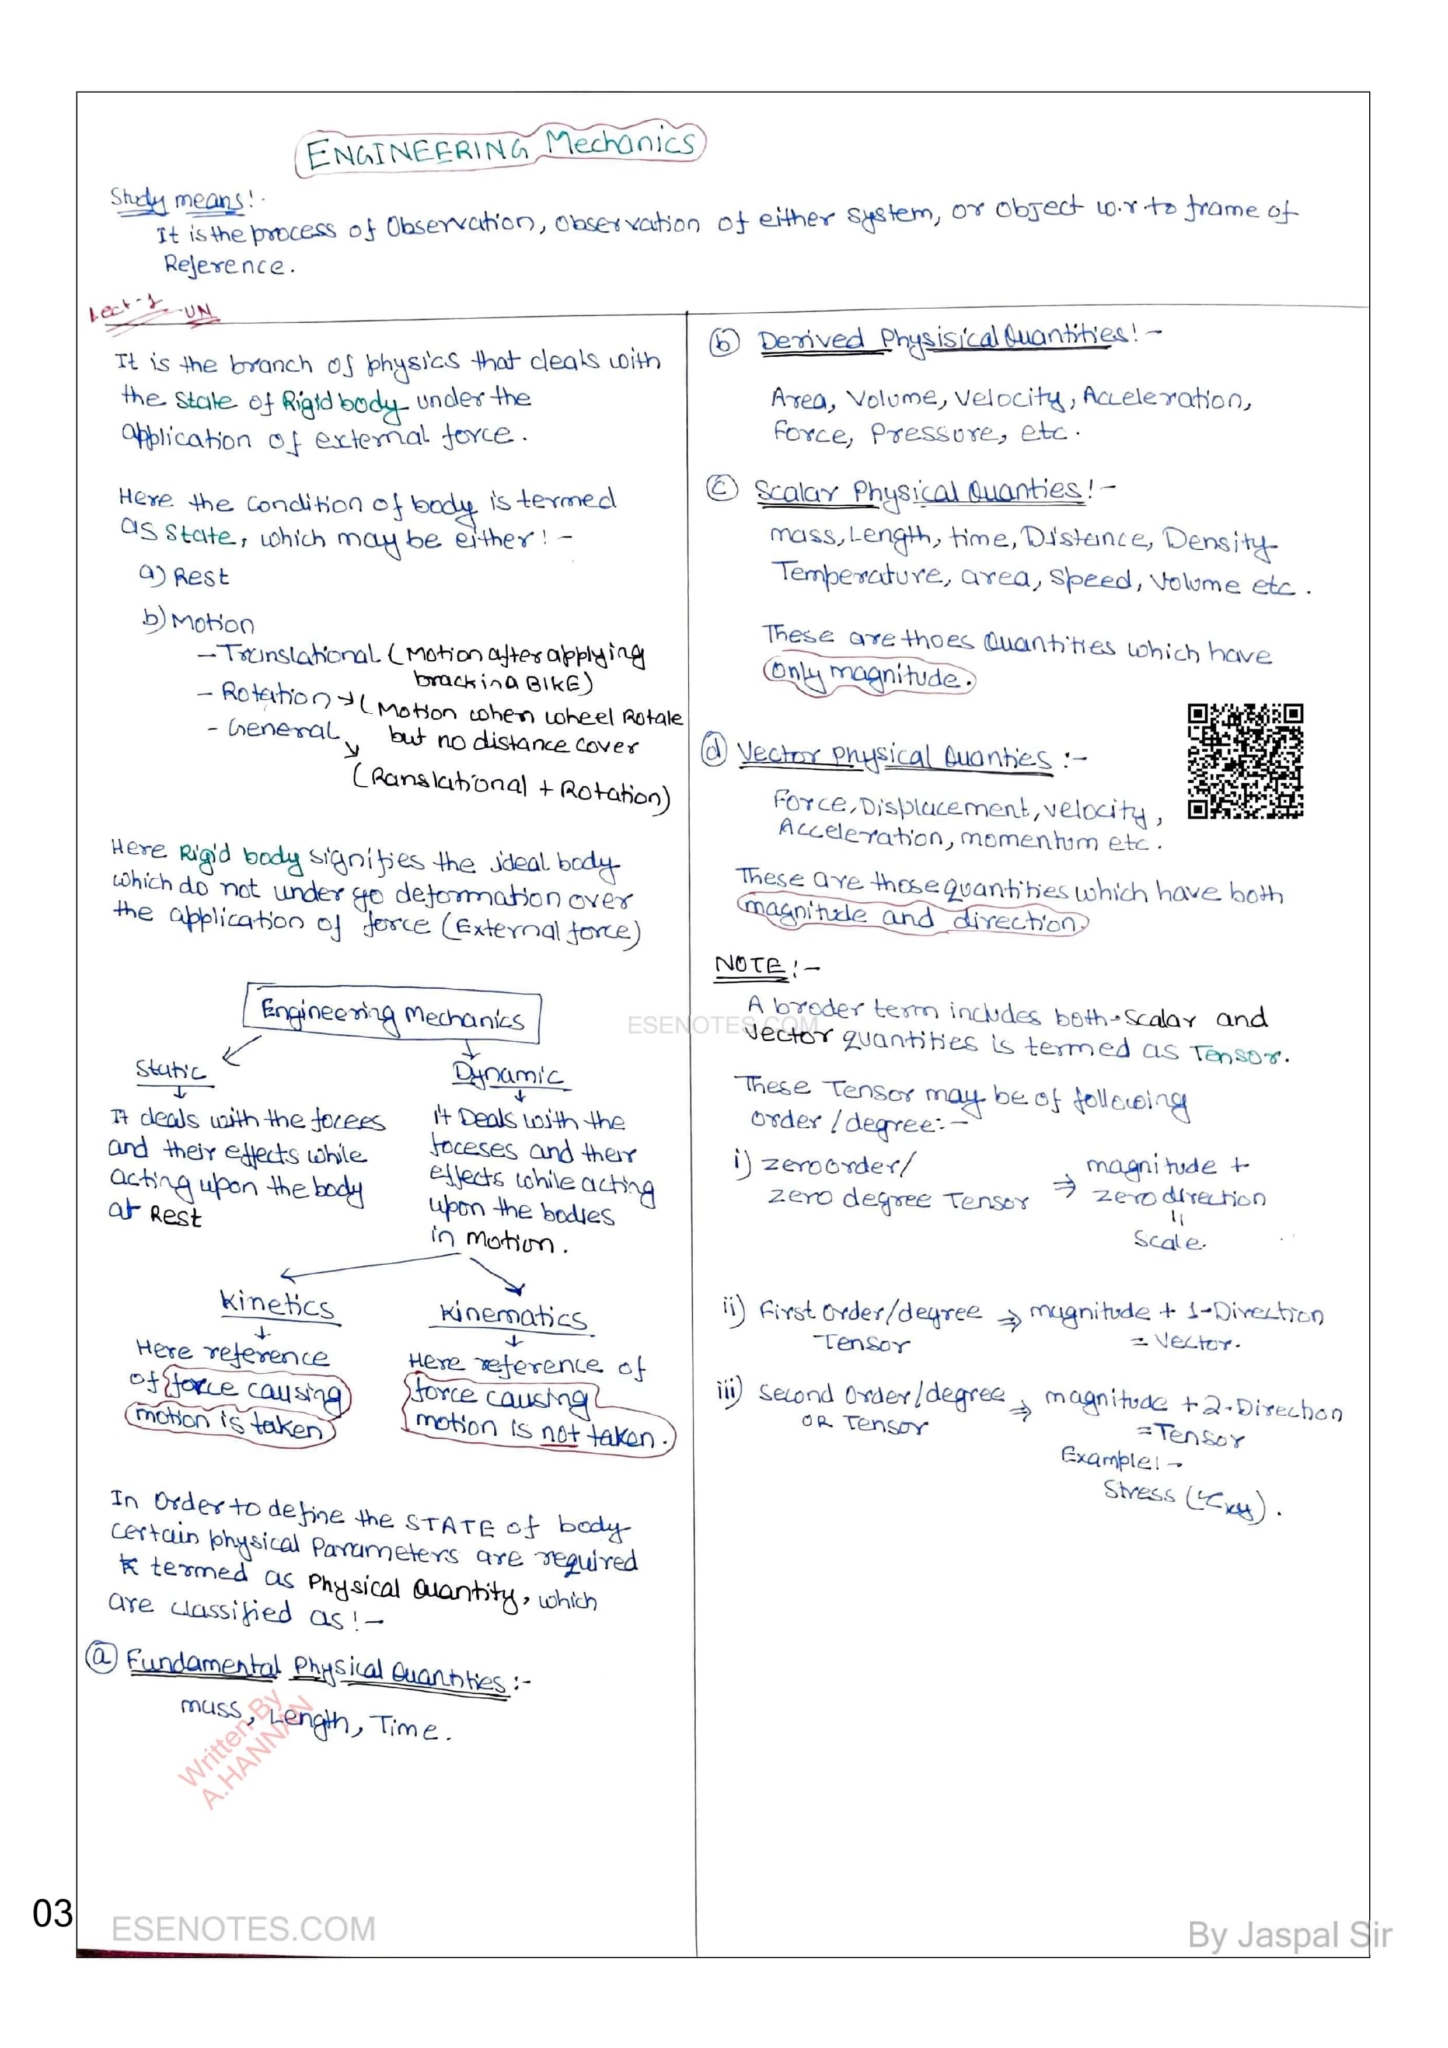 ENGINEERING Mechanics
Study means!-
It is the process of Observation, Observation of either system, or object w.r to frame of
Reference.
Lect-1 UN
It is the branch of physics that deals with
the state of Rigid body under the
application of external force.
Here the condition of body is termed
as state, which may be either!-
a) Rest
b) Motion
- Translational (Motion after applying
brack in a BIKE)
- Rotation → (Motion when wheel Rotale
but no distance cover
- General
(Ranslational + Rotation)
Here Rigid body signifies the ideal body
which do not under go deformation over
the application of force (External force)
Engineering Mechanics
Static
It deals with the focees
and their effects while
acting upon the body
at Rest
Dynamic
it Deals with the
foceses and their
effects while acting
upon the bodies
in motion.
Kinetics
Here reference
of force causing
motion is taken
Kinematics
Here reference of
force causing
motion is not taken.
In order to define the STATE of body
certain physical Parameters are required
termed as Physical Quantity, which
are classified as!-
(a) Fundamental Physical Quantities:-
mass, Length, Time.
(b) Derived Physisical Quantities!-
Area, Volume, Velocity, Acceleration,
Force, Pressure, etc.
(c) Scalar Physical Quanties!-
mass, Length, time, Distance, Density
Temperature, area, speed, Volume etc.
These are thoes Quantities which have
Only magnitude.
(d) Vector Physical Quanties:-
Force, Displacement, velocity,
Acceleration, momentum etc.
These are those quantities which have both
magnitude and direction.
NOTE!-
A broder term includes both scalar and
vector quantities is termed as Tensor.
These Tensor may be of following
order/degree:-
i) zero order/
zero degree Tensor ⇒ magnitude +
zero direction
=
Scale.
ii) First order/degree ⇒ magnitude + 1-Direction
Tensor = Vector.
iii) Second Order/degree ⇒ magnitude + 2-Direction
OR Tensor = Tensor
Example!-
Stress (τxy).
ESENOTES.COM
Written By
A.HANNAN
03
ESENOTES.COM
By Jaspal Sir